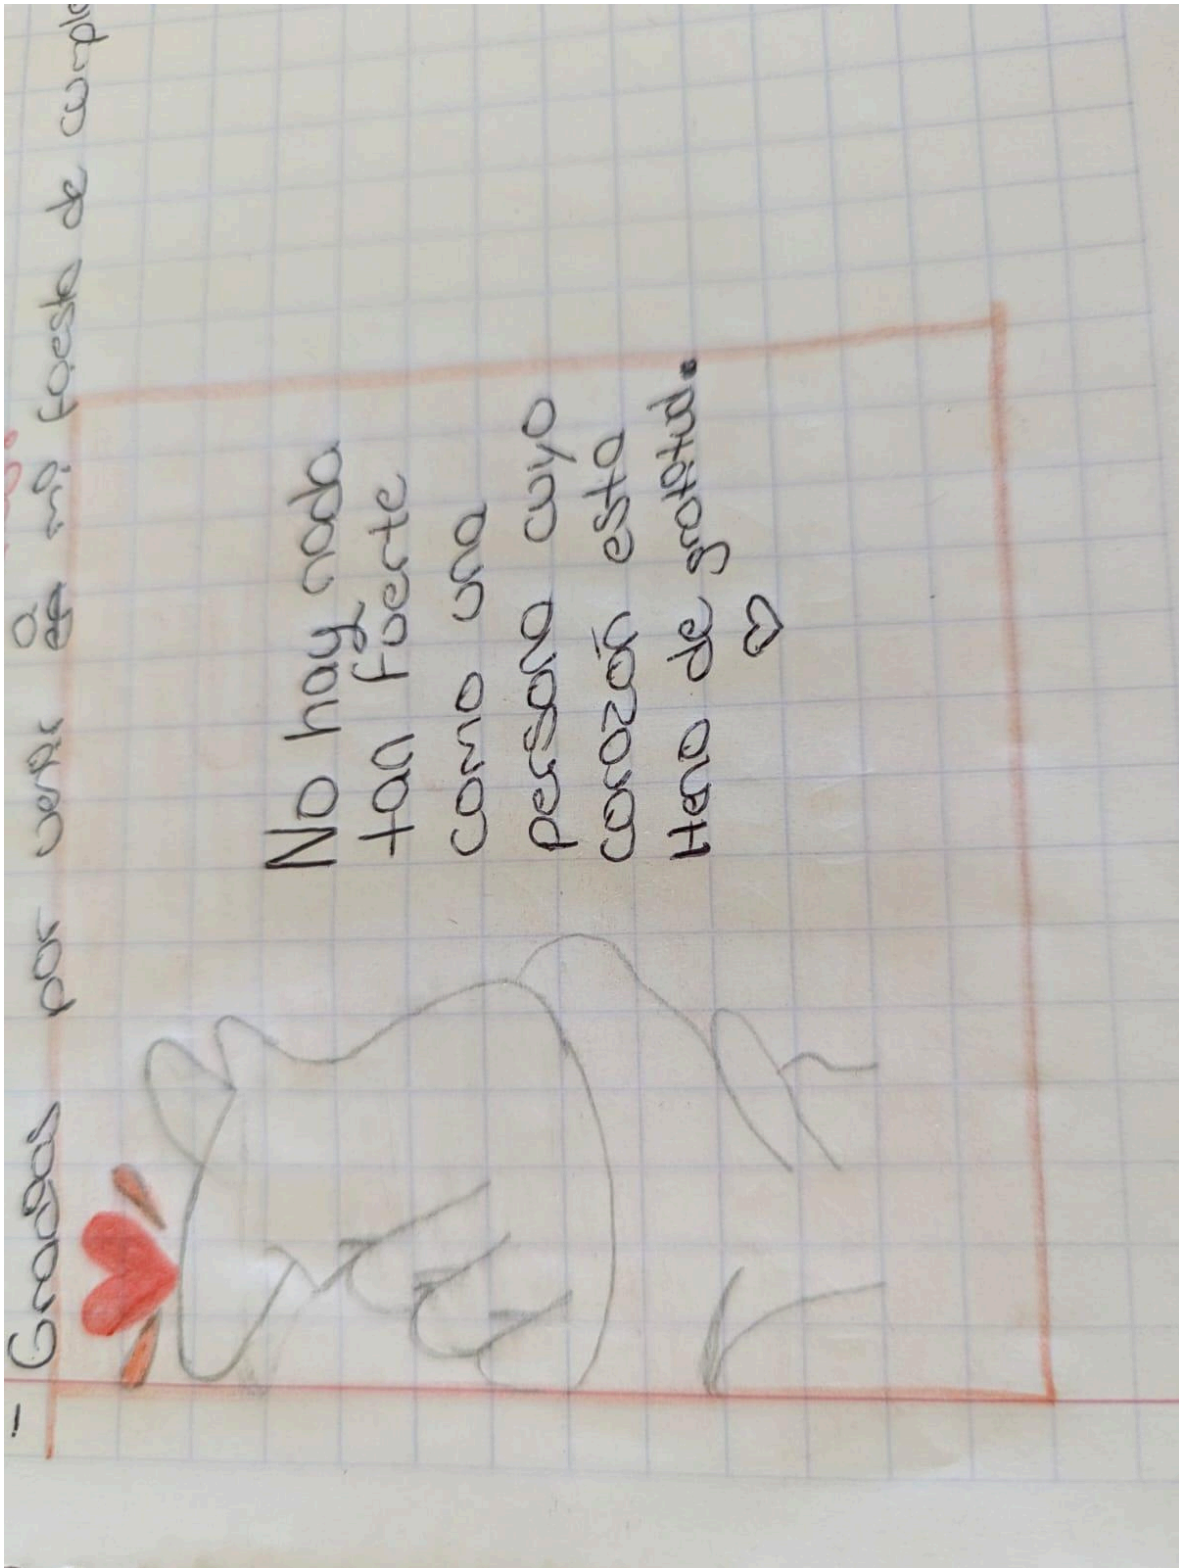 - Gracias por venir a mi fiesta de cumple
No hay nada
tan fuerte
como una
persona cuyo
corazón esta
lleno de gratitud.